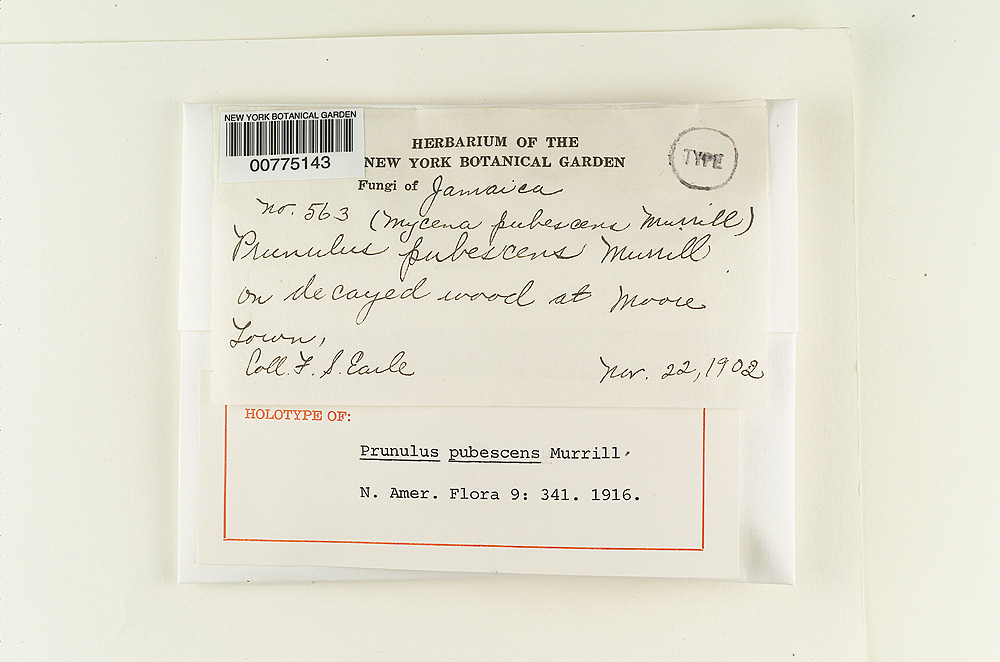 NEW YORK BOTANICAL GARDEN
00775143
HERBARIUM OF THE
NEW YORK BOTANICAL GARDEN
TYPE
Fungi of Jamaica
No. 563 (Mycena pubescens Murrill)
Prunulus pubescens Murrill
on decayed wood at Moore
Town,
Coll. F. S. Earle
Nov. 22, 1902
HOLOTYPE OF:
Prunulus pubescens Murrill
N. Amer. Flora 9: 341. 1916.